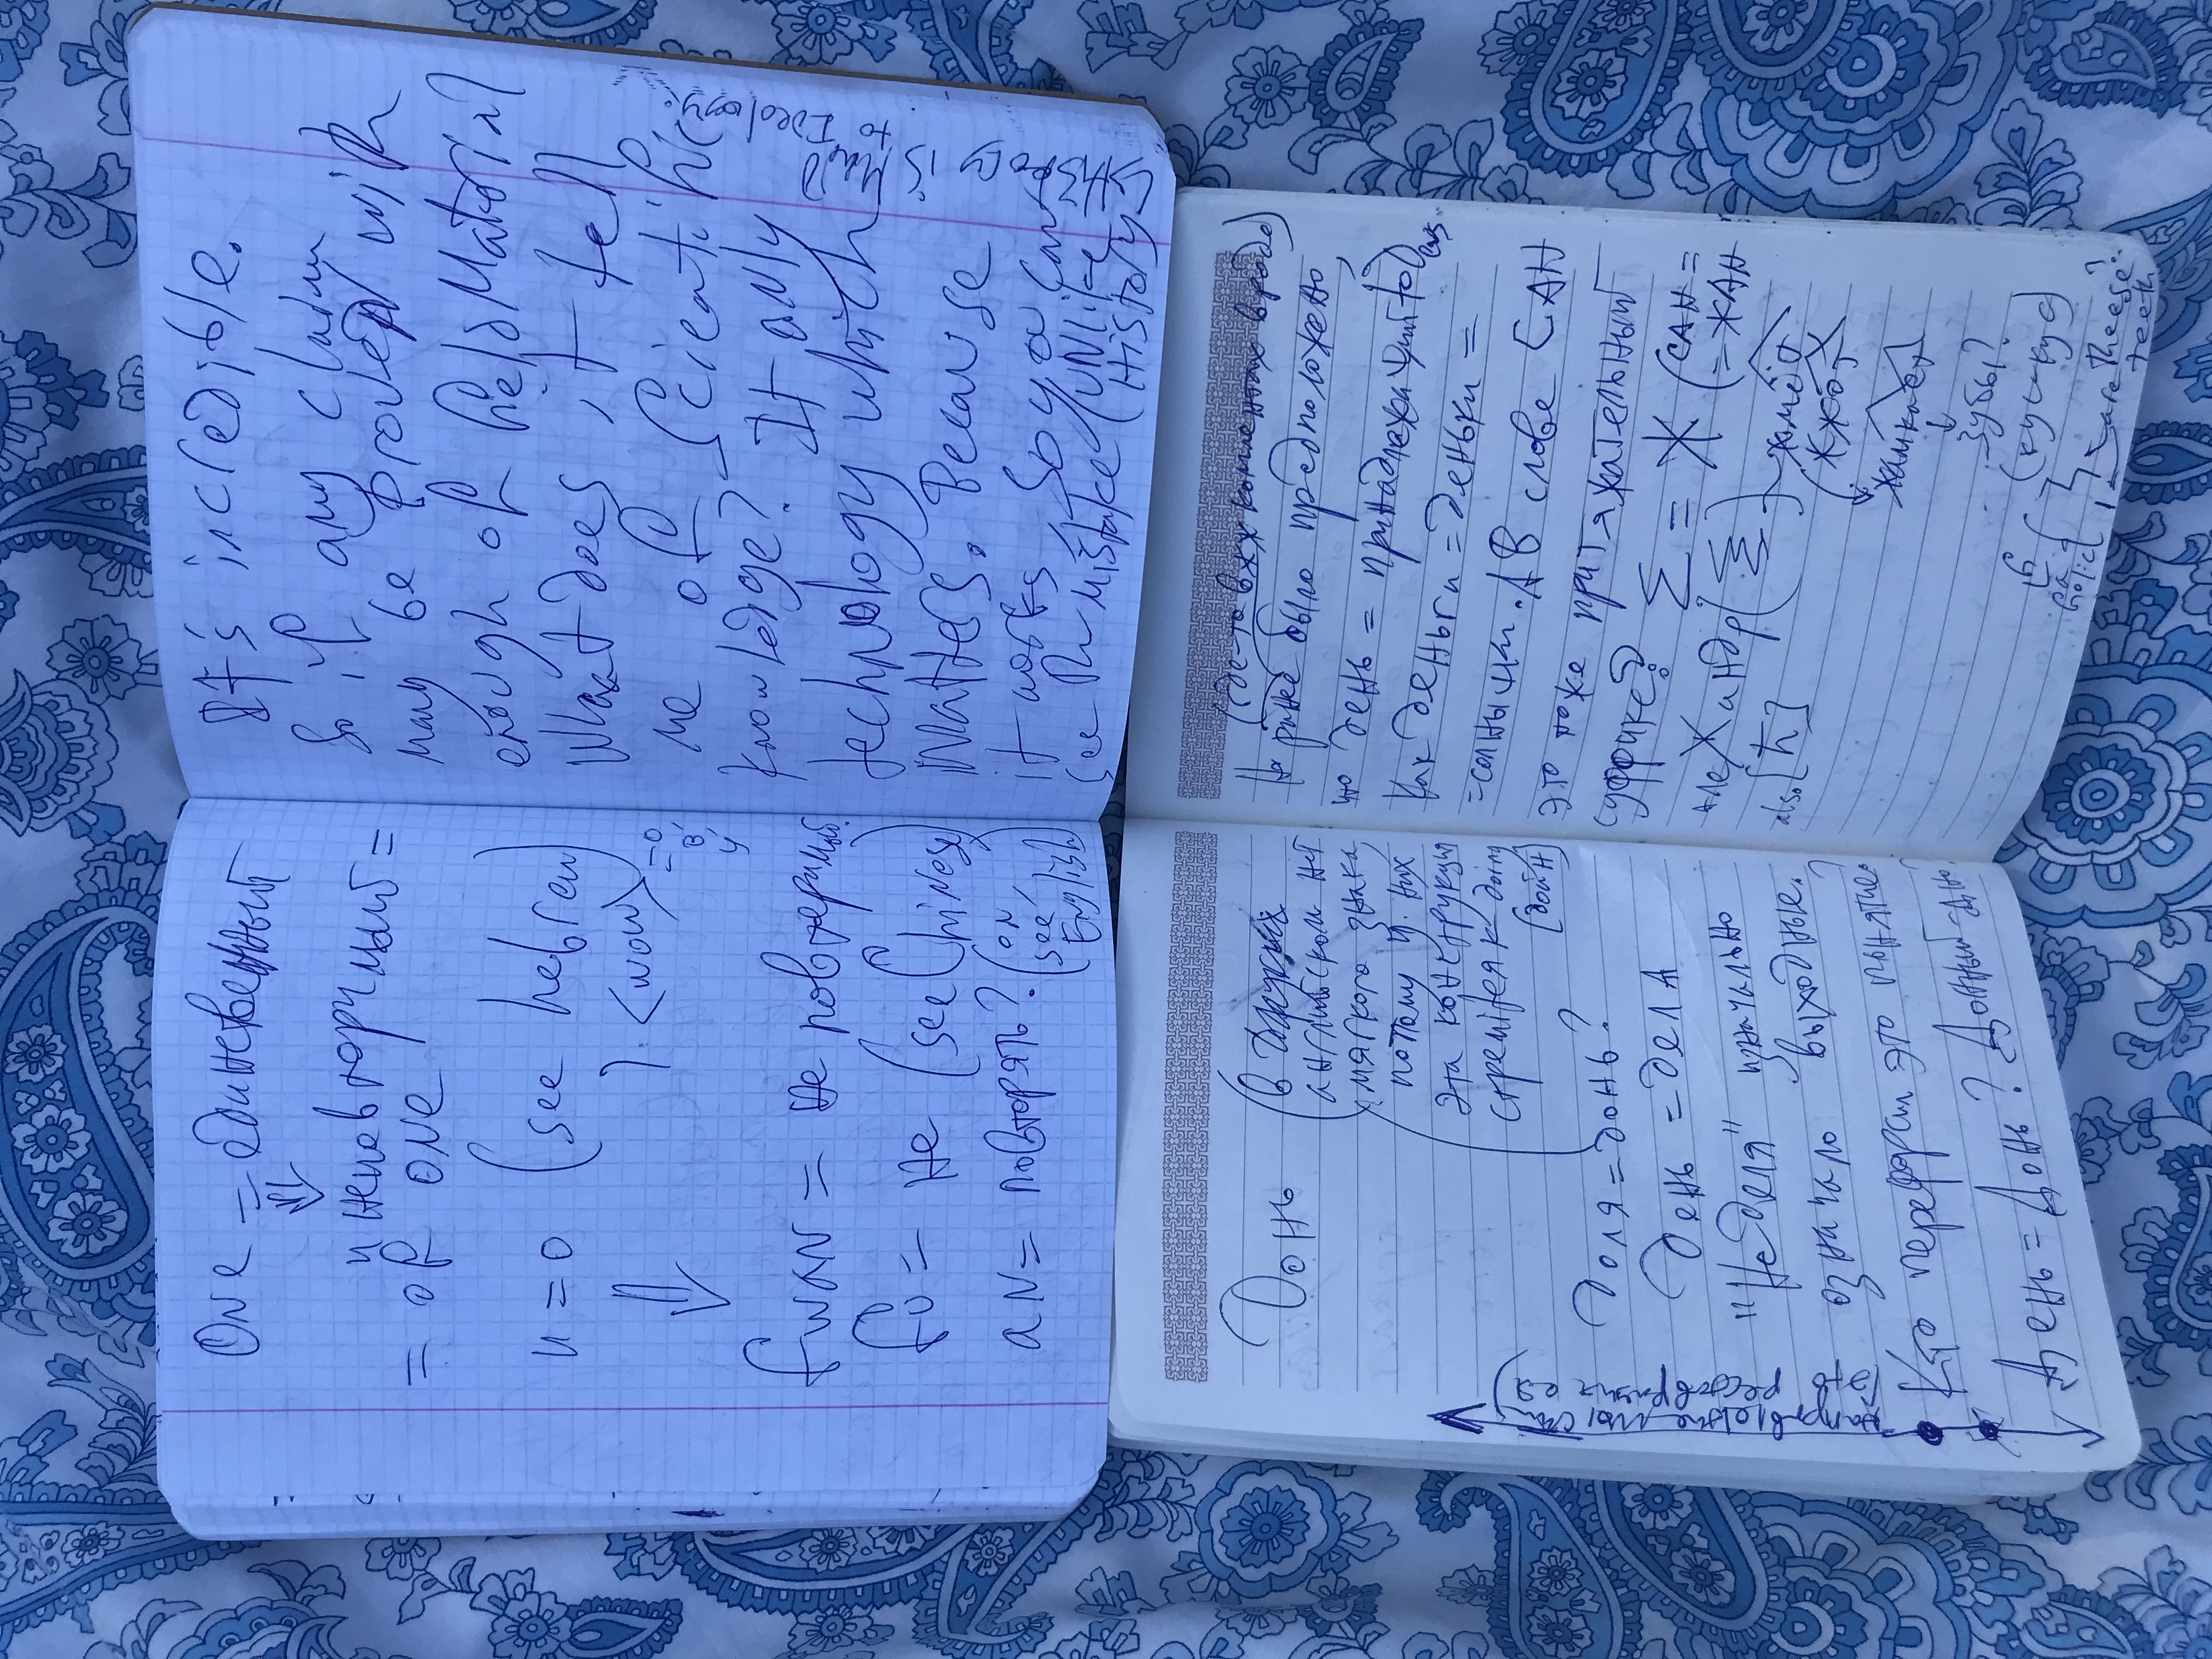 One = единственный
⇓
и неповторимый =
= of one
и = о (see hebrew
ו <wow>)
= о,
в,
у
⇓
fwan = не повторимый
fu = не (see Chinese)
an = повторять? (on,
see
English)
It's incredible.
So if any claim
may be proven with
enough of field Material
What does it tell
me of scientific
knowledge? It only
technology which
matters. Because
it works, so you can
see the mistake (unlike
History)
History is
to Ideology.
Донь (в
английском нет
мягкого знака,
потому у них
эта конструкция
стремится к doing
[дойн]
Доля = донь?
День = делА
"Неделя" изначально
означало выходные.
Кто переформил это понятие?
День = Донь? Донный = Дно?
(где-то в жж комментах вроде)
На ранее было предположено,
что день = принадлежащий to Deus.
Как деньги = деньки =
= солнышки. А В слове САН
это тоже притяжательный
суффикс? Σ = Ж (САН =
= ЖАН
алеЖандр
also [ħ]
жмёт
(жжёт
жамкает
↓
зубы?
(кус-кус)
are theese?
teeth